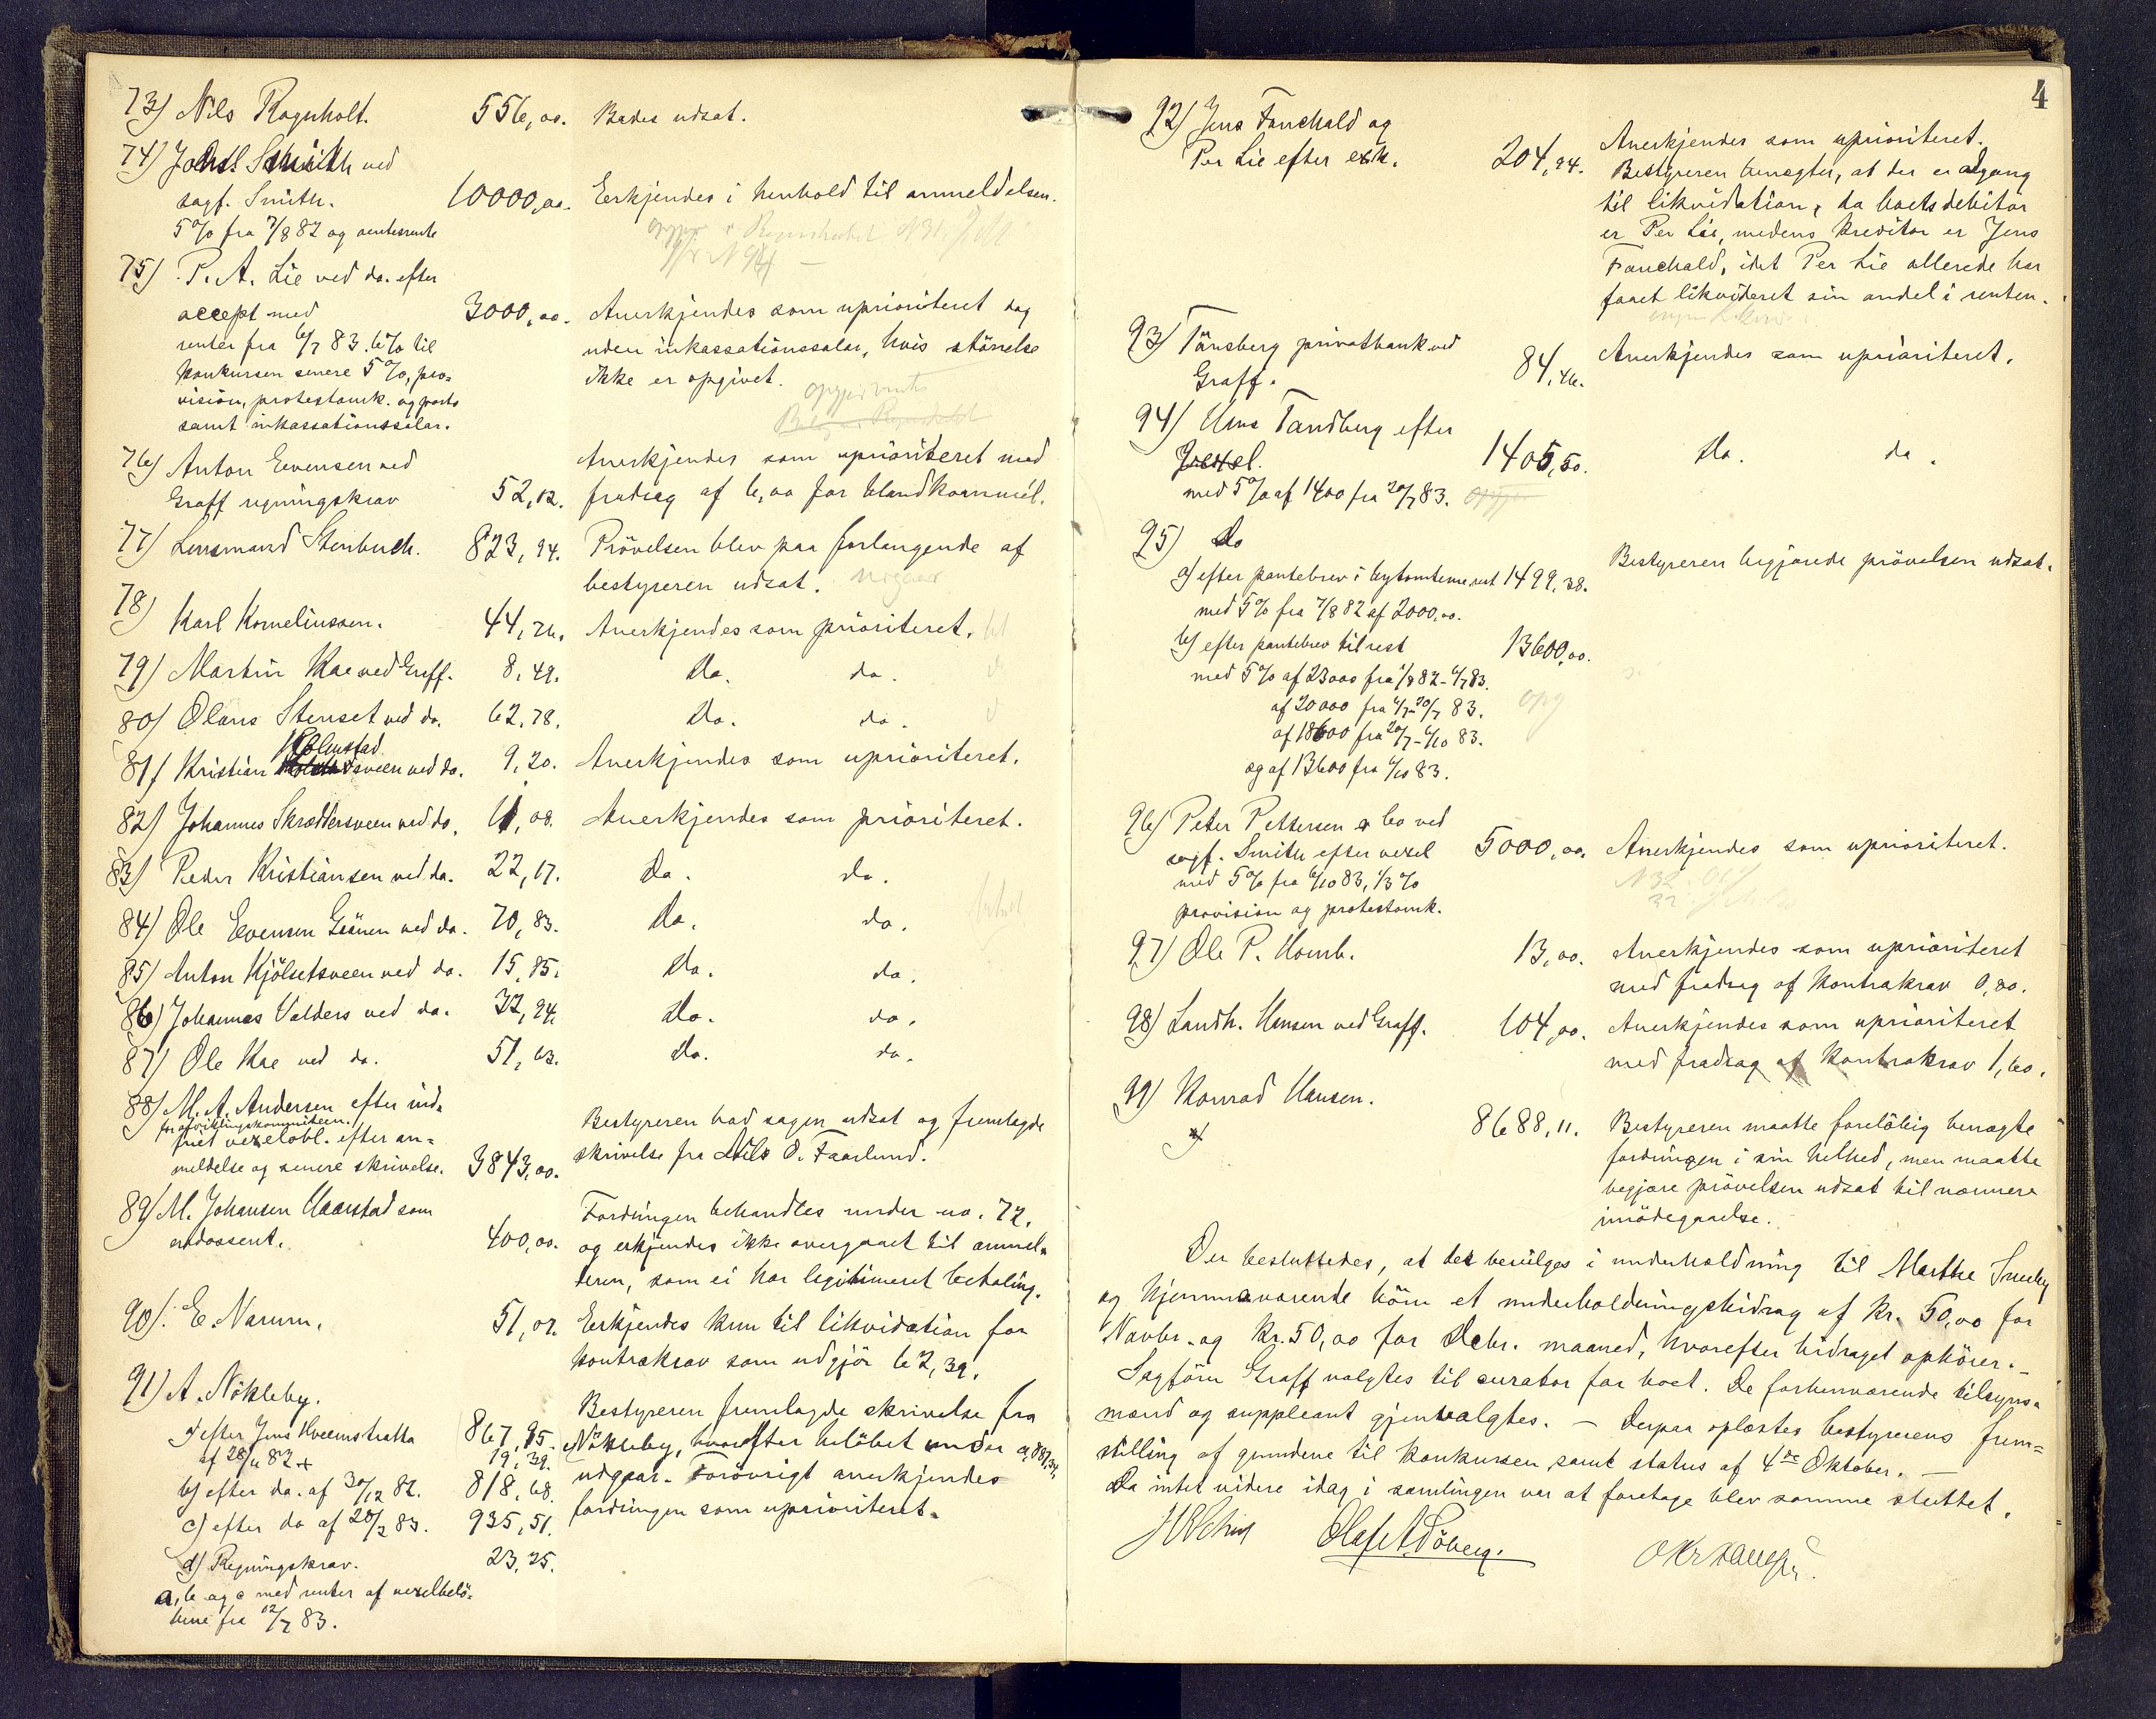 73) Nils Rognholt. 556,00. Bades udsat.
74) Smith ved
sagf. Smith. 10000,00. Erkjendes i henhold til anmeldelsen.
5% fra 7/8 82 og rentesrente
75) P. A. Lie ved do. efter
accept med 3000,00. Anerkjendes som uprioriteret dog
renter fra 6/7 83. 6% til uden inkassationssalar, hvis störrelse
konkursen senere 5%, pro= ikke er opgivet.
vision, protestomk. og porto
samt inkassationssalar.
76) Anton Evensen ved Anerkjendes som uprioriteret med
Graff regningskrav 52,12. fradrag af 6,00 for blandkornmel.
77) Lensmand Stenbuch. 823,94. Prövelsen blev paa forlangende af
bestyreren udsat.
78) Karl Korneliussen. 44,26. Anerkjendes som prioriteret.
79) Martin Kae ved Graff. 8,49. Do. do.
80) Olaus Stenset ved do. 62,78. Do. do.
Holmstad
81) Kristian sveen ved do. 9,20. Anerkjendes som uprioriteret.
82) Johannes Skræddersveen ved do. 61,08. Anerkjendes som prioriteret.
83) Peder Kristiansen ved do. 22,17. Do. do.
84) Ole Evensen Grönen ved do. 70,83. Do. do.
85) Anton Kjölsetsveen ved do. 15,85. Do. do.
86) Johannes Valders ved do. 32,94. Do. do.
87) Ole Kae ved do. 51,63. Do. do.
88) M. A. Andersen efter ind=
for afviklingskommiteen.
friet vexelobl. efter an= Bestyreren bad sagen udsat og fremlagde
meldelse og senere skrivelse. 3843,00. skrivelse fra Nils O. Faarlund.
89) M. Johansen Haarstad som Fordringen behandles under no. 72,
endossent. 400,00. og erkjendes ikke overgaaet til anmel=
deren, som ei har legitimeret betaling.
90) E. Narum. 51,07. Erkjendes kun til likvidation for
kontrakrav som udgjör 62,39.
91) A. Nökleby.
a) efter Jens Hveemstratta 867,95. Bestyreren fremlagde skrivelse fra
af 28/11 82 + 19,39. Nökleby, hvorefter belöbet under a, 887,34,
b) efter do. af 30/12 82. 818,68. udgaar. Forövrigt anerkjendes
c) efter do af 28/3 83. 935,51. fordringen som uprioriteret.
d) Regningskrav. 23,25.
a, b og c med renter af vexelbelö=
bene fra 12/7 83.
4
92) Jens Fauchald og Anerkjendes som uprioriteret.
Per Lie efter exk. 204,94. Bestyreren benegter, at der er adgang
til likvidation, da boets debitor
er Per Lie, medens kreditor er Jens
Fauchald, idet Per Lie allerede har
faaet likvideret sin andel i renten.
93) Tönsberg privatbank ved Anerkjendes som uprioriteret.
Graff. 84,46.
94) Hans Tandberg efter
1405,50. Do. do.
med 5% af 1400 fra 20/7 83.
95) Do Bestyreren begjærede prövelsen udsat.
a) efter pantebrev i bytomterne rest 1499,38.
med 5% fra 7/8 82 af 2000,00.
b) efter pantebrev til rest 13600,00.
med 5% af 23000 fra 7/8 82 - 4/7 83.
af 20000 fra 4/7-20/7 83.
af 18600 fra 20/7-4/10 83.
og af 13600 fra 4/10 83.
96) Peter Pettersen & Co ved
sagf. Smith efter vexel 5000,00. Anerkjendes som uprioriteret.
med 5% fra 6/10 83, 1/3%
provision og protestomk.
97) Ole P. Homb. 13,00. Anerkjendes som uprioriteret
med fradrag af kontrakrav 0,80.
98) Landh. Hansen ved Graff. 104,00. Anerkjendes som uprioriteret
med fradrag af kontrakrav 1,60.
99) Konrad Hansen.
8688,11. Bestyreren maatte forelöbig benægte
fordringen i sin helhed, men maatte
begjære prövelsen udsat til nærmere
imödegaaelse.
Der besluttedes, at der bevilges i underholdning til Marthe Sneeby
og hjemmeværende börn et underholdningsbidrag af kr. 50,00 for
Novbr. og kr. 50,00 for Debr. maaned, hvorefter bidraget ophörer.-
Sagförer Graff valgtes til curator for boet. De forhenværende tilsyns=
mænd og suppleant gjenvalgtes. - Derpaa oplæstes bestyrerens frem=
stilling af grundene til konkursen samt status af 4de Oktober. -
Da intet videre idag i samlingen var at foretage blev samme sluttet.
Olaf A. Söberg.